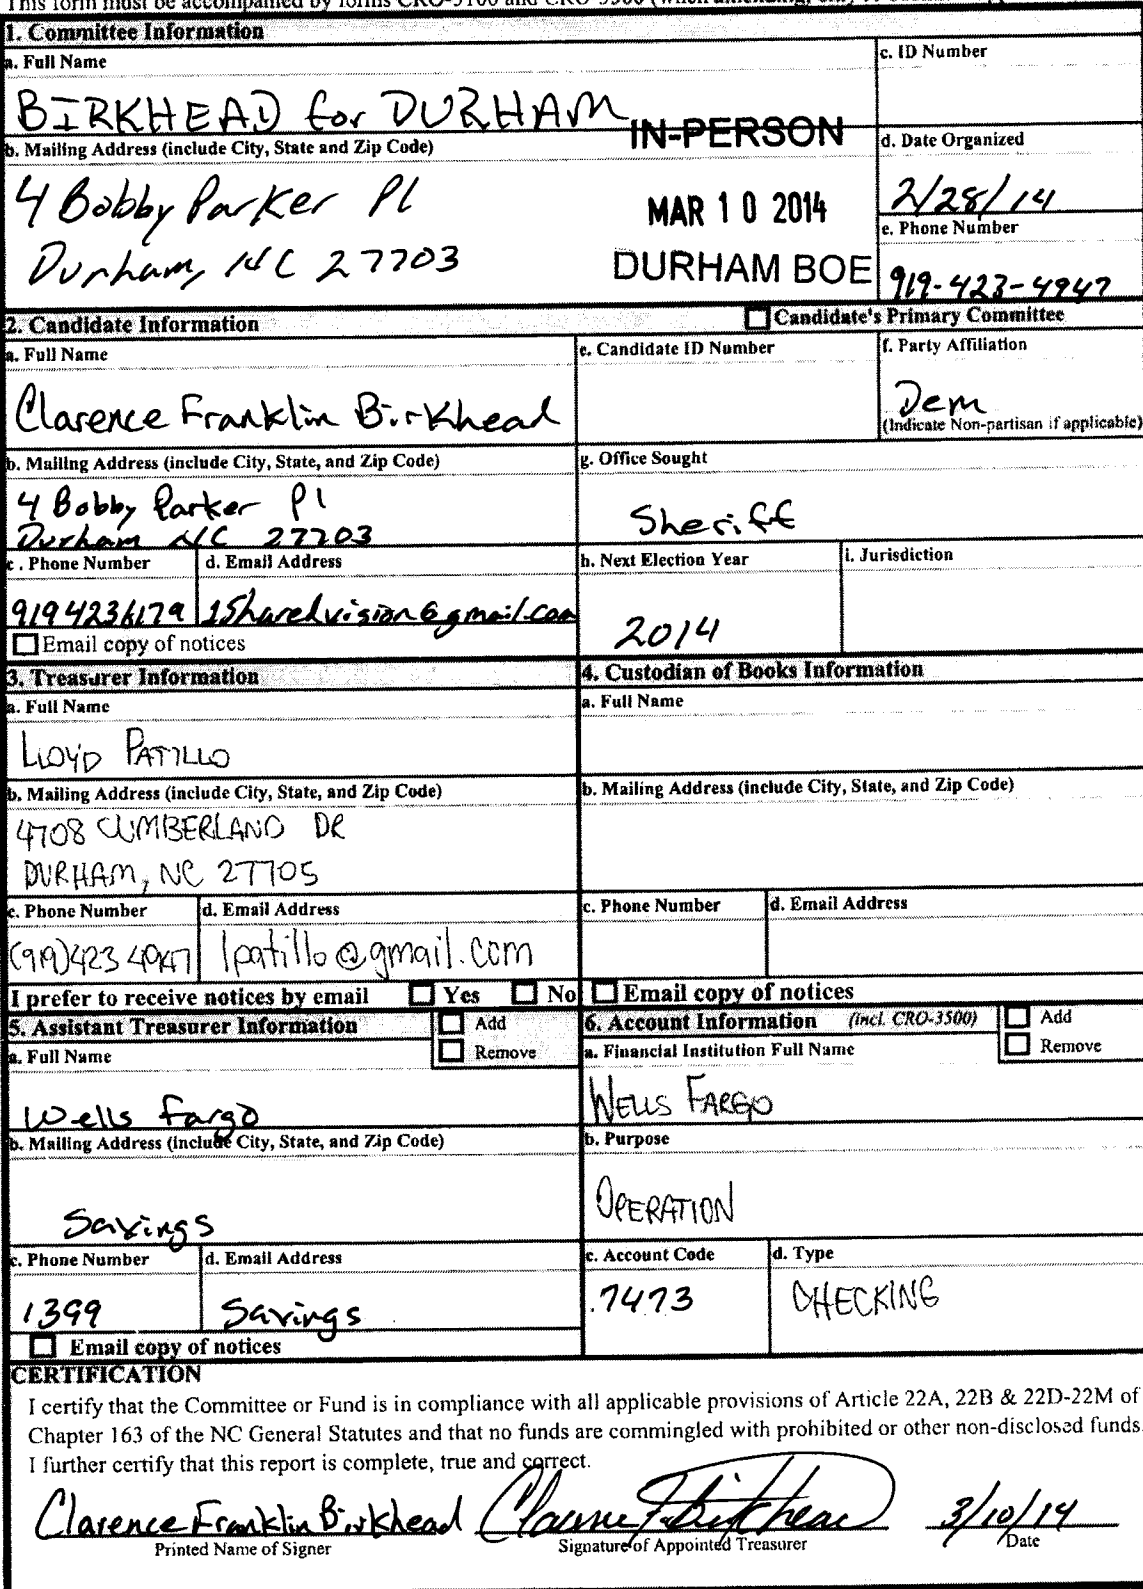 This form must be accompanied by forms CRO-3100 and CRO-3500
1. Committee Information
a. Full Name
BIRKHEAD for DURHAM
c. ID Number
IN-PERSON
MAR 10 2014
DURHAM BOE
b. Mailing Address (include City, State and Zip Code)
4 Bobby Parker Pl
Durham, NC 27703
d. Date Organized
2/28/14
e. Phone Number
919-423-4947
2. Candidate Information
Candidate's Primary Committee
a. Full Name
Clarence Franklin Birkhead
e. Candidate ID Number
f. Party Affiliation
Dem
(Indicate Non-partisan if applicable)
b. Mailing Address (include City, State, and Zip Code)
4 Bobby Parker Pl
Durham NC 27703
g. Office Sought
Sheriff
c . Phone Number
9194236179
d. Email Address
1Sharedvision@gmail.com
Email copy of notices
h. Next Election Year
2014
i. Jurisdiction
3. Treasurer Information
a. Full Name
LLOYD PATILLO
b. Mailing Address (include City, State, and Zip Code)
4708 CUMBERLAND DR
DURHAM, NC 27705
c. Phone Number
(919)423 4947
d. Email Address
lpatillo@gmail.com
I prefer to receive notices by email Yes No
4. Custodian of Books Information
a. Full Name
b. Mailing Address (include City, State, and Zip Code)
c. Phone Number
d. Email Address
Email copy of notices
5. Assistant Treasurer Information
Add
Remove
a. Full Name
Wells Fargo
b. Mailing Address (include City, State, and Zip Code)
Savings
c. Phone Number
1399
d. Email Address
Savings
Email copy of notices
6. Account Information (incl. CRO-3500)
Add
Remove
a. Financial Institution Full Name
WELLS FARGO
b. Purpose
OPERATION
c. Account Code
7473
d. Type
CHECKING
CERTIFICATION
I certify that the Committee or Fund is in compliance with all applicable provisions of Article 22A, 22B & 22D-22M of
Chapter 163 of the NC General Statutes and that no funds are commingled with prohibited or other non-disclosed funds.
I further certify that this report is complete, true and correct.
Clarence Franklin Birkhead
Printed Name of Signer
Clarence F. Birkhead
Signature of Appointed Treasurer
3/10/14
Date